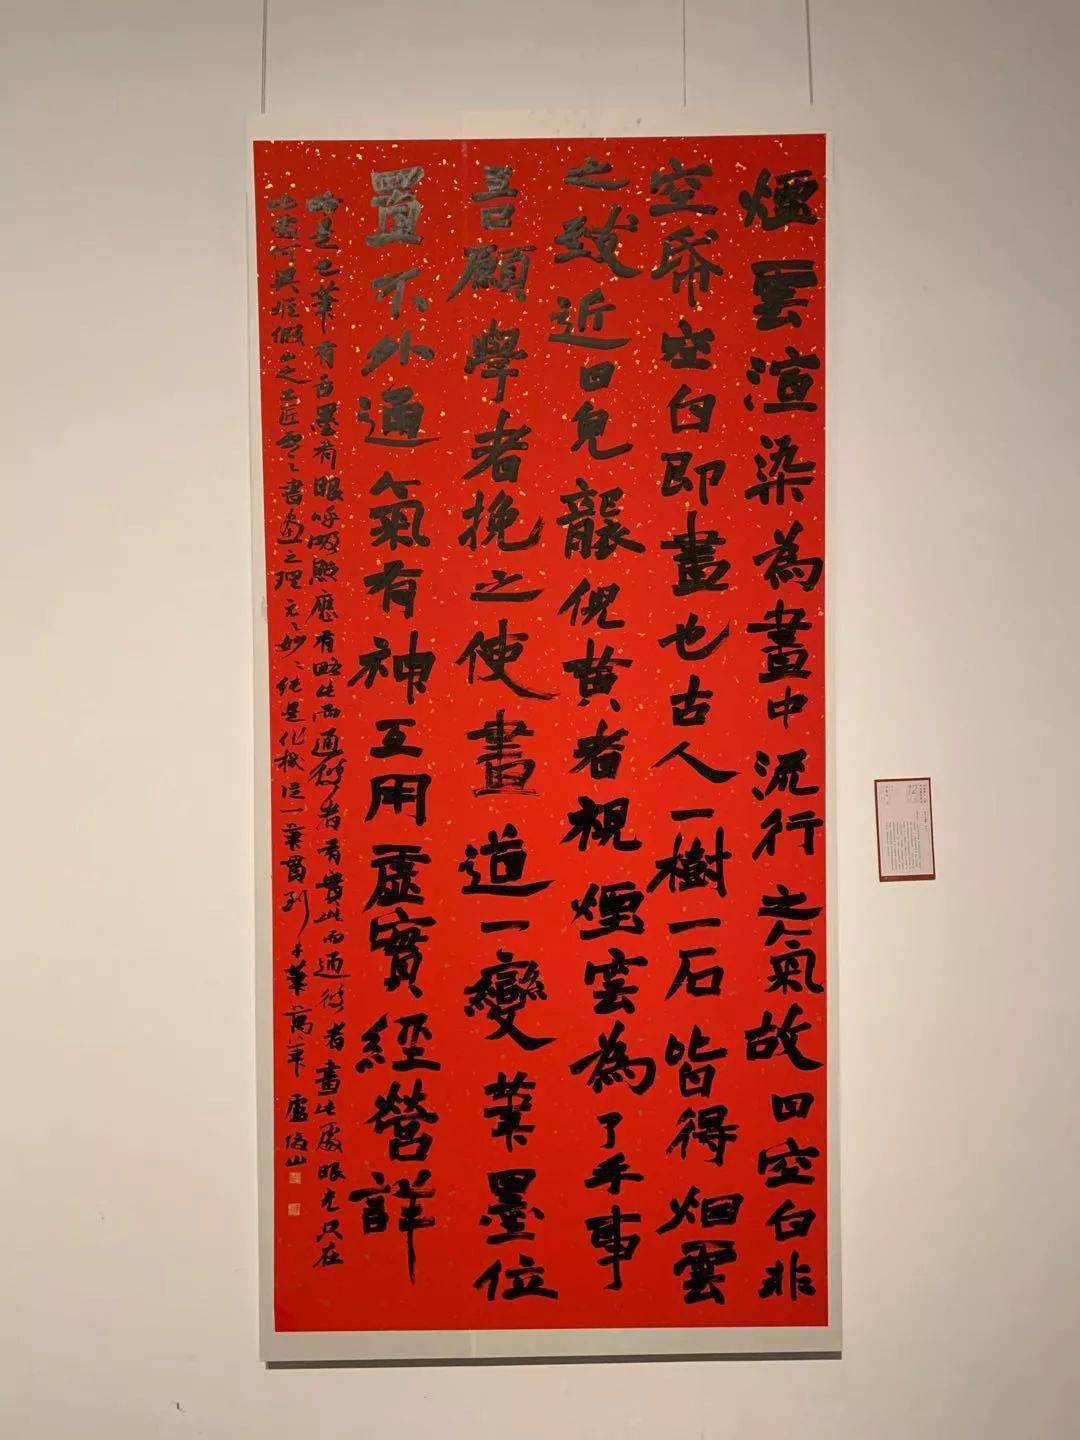 煙雲渲染為畫中流行之氣故曰空白非
空帋空白即畫也古人一樹一石皆得烟雲
之致近日見襲倪黄者視煙雲為了手事
吾願學者挽之使畫道一變筆墨位
置不外通氣有神互用虛實經營詳
略是也筆有舌墨有眼呼吸照應有略此而通彼者有實此而通彼者畫此處眼光只在
此處何異堆假山之工匠書畫之理元之妙純是化機從一筆貫到千筆萬筆 盧俊山